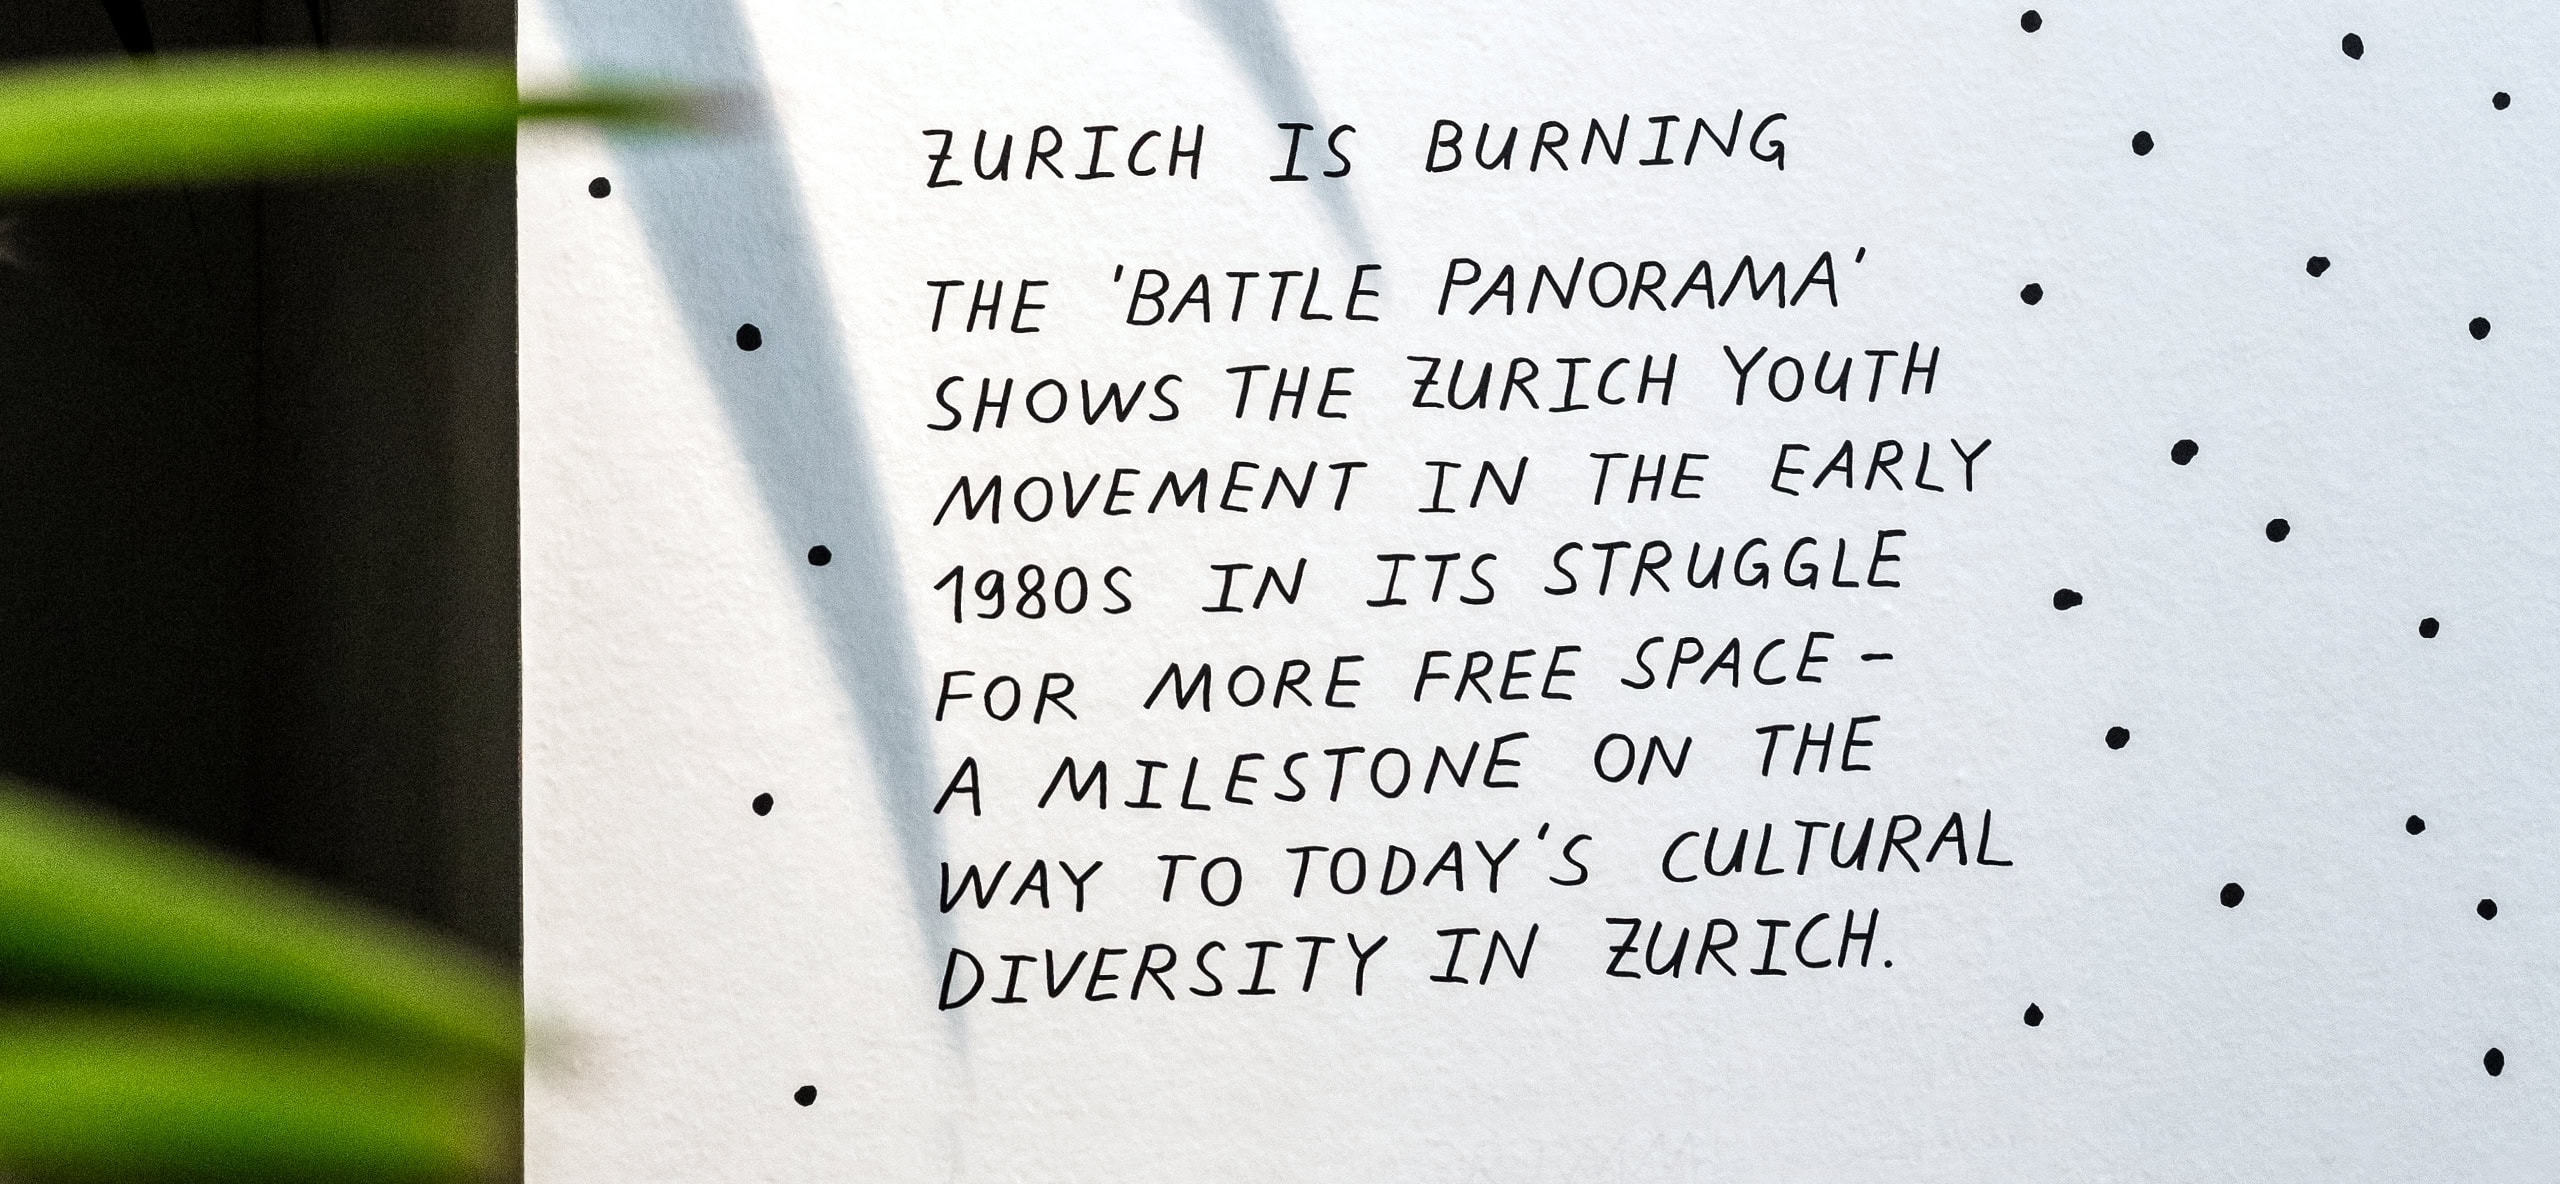 ZURICH IS BURNING
THE 'BATTLE PANORAMA'
SHOWS THE ZURICH YOUTH
MOVEMENT IN THE EARLY
1980S IN ITS STRUGGLE
FOR MORE FREE SPACE -
A MILESTONE ON THE
WAY TO TODAY'S CULTURAL
DIVERSITY IN ZURICH.